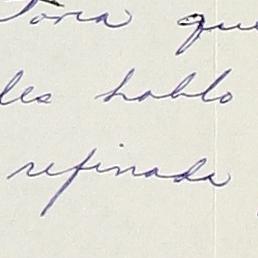 que
les hablo
refinada